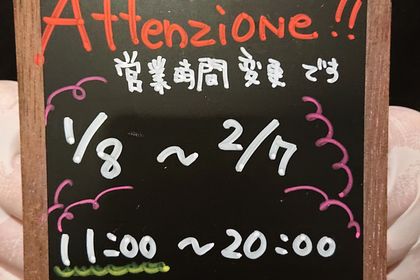 Attenzione!!
営業時間変更です
1/8 ~ 2/7
11:00 ~ 20:00